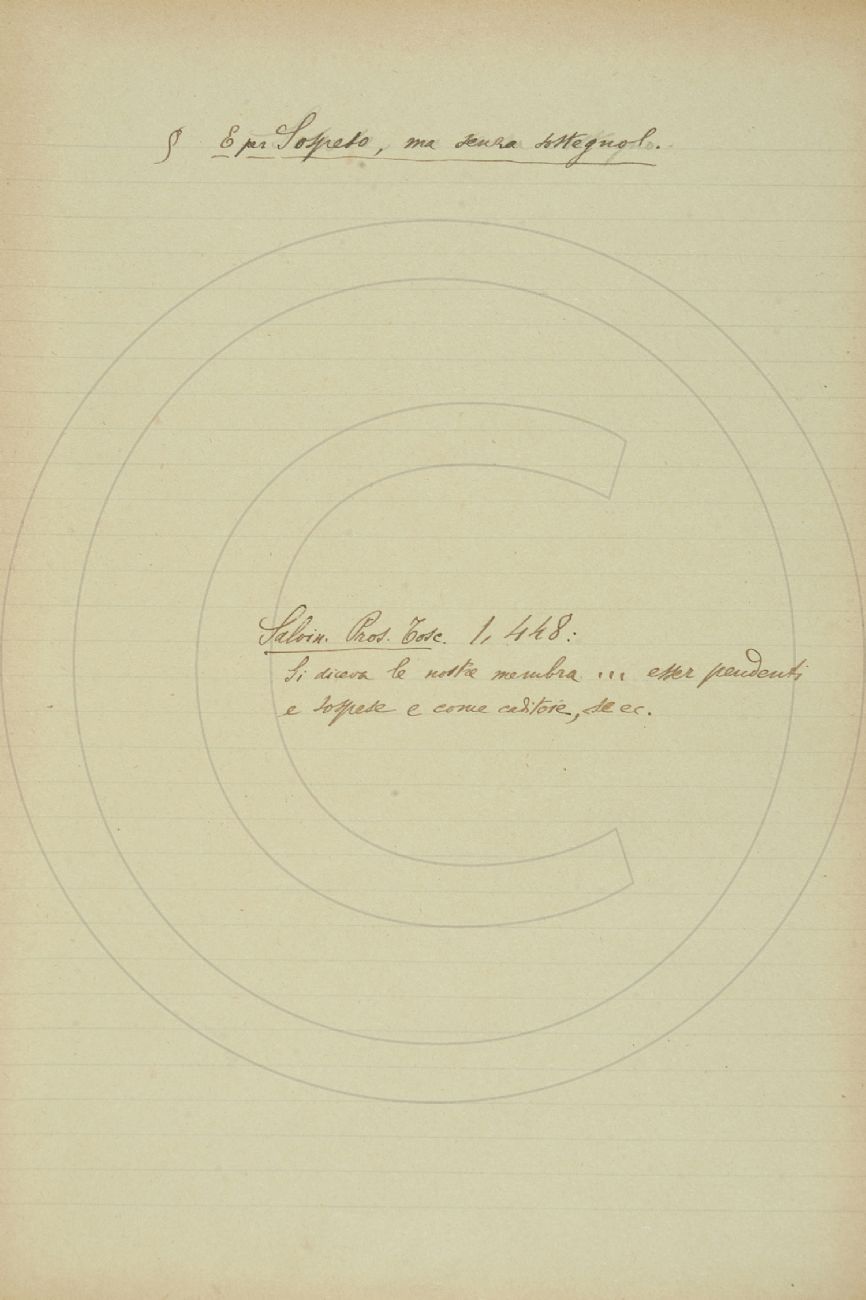 § E per Sospeso, ma senza sostegno.
Salvin. Pros. Tosc. 1, 448:
Si diceva le nostre membra ... esser pendenti
e sospese e come caditoie, se ec.